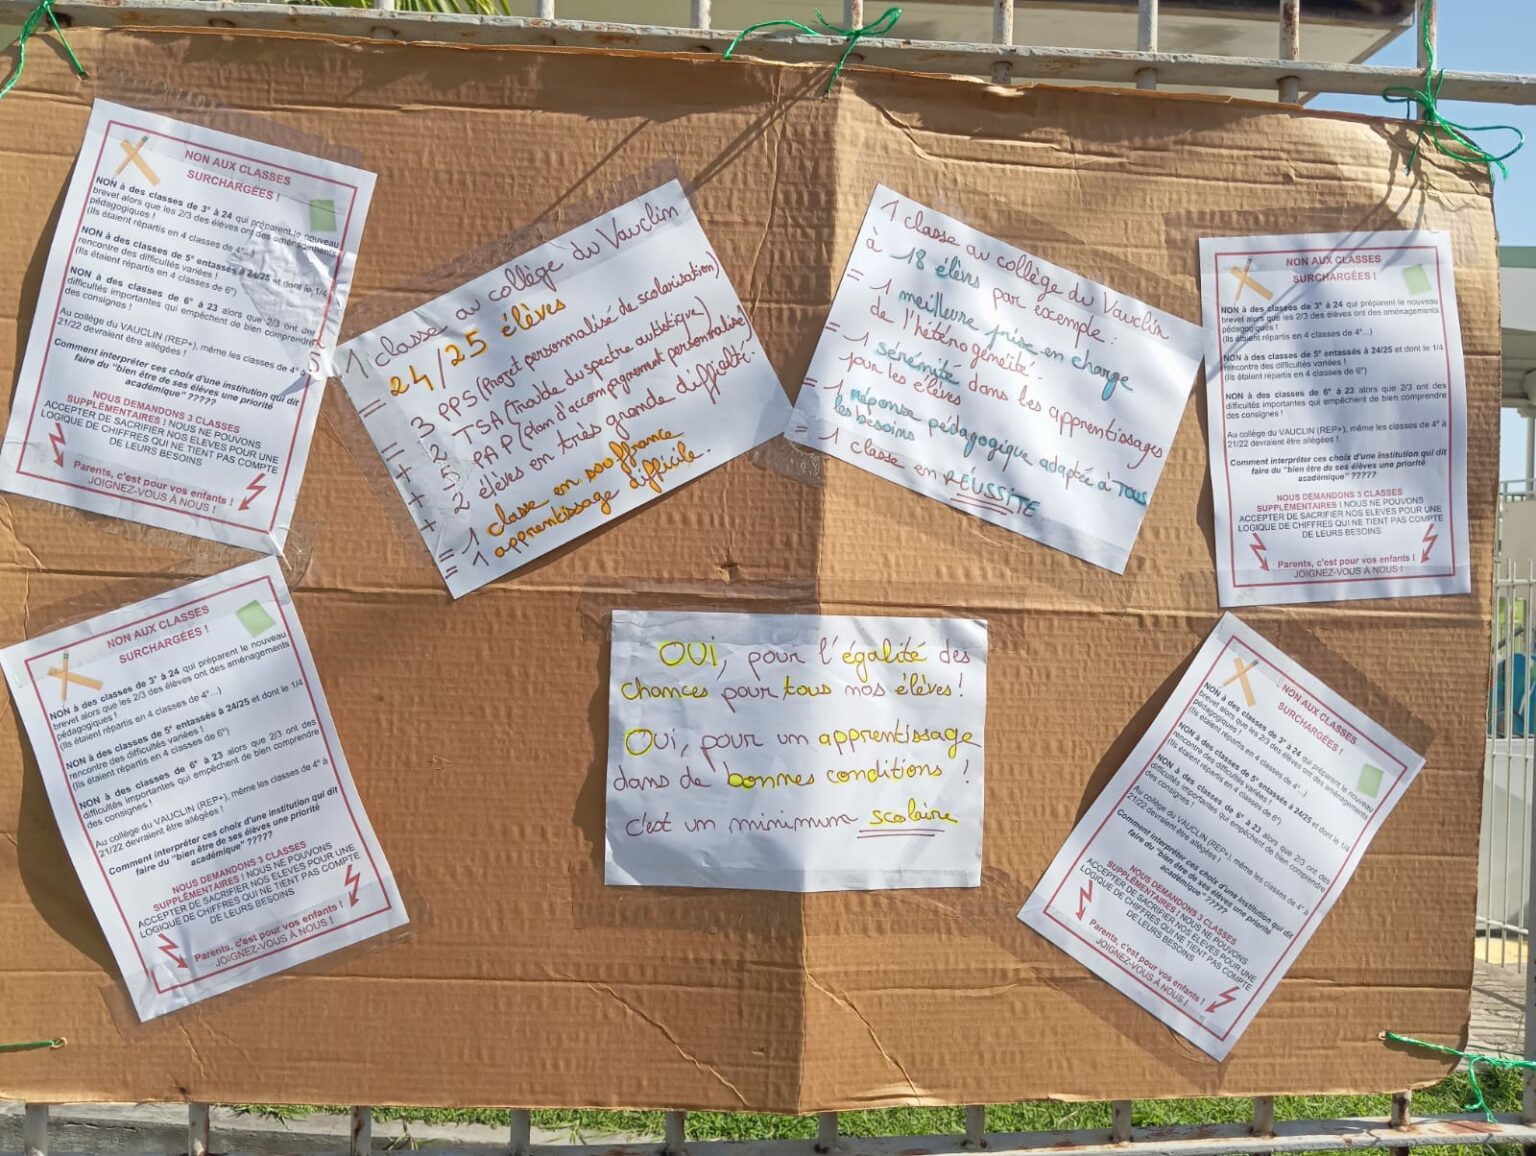 NON AUX CLASSES
SURCHARGÉES !
NON à des classes de 3° à 24 qui préparent le nouveau
brevet alors que les 2/3 des élèves ont des aménagements
pédagogiques !
(Ils étaient répartis en 4 classes de 4°...)
NON à des classes de 5° entassés à 24/25 et dont le 1/4
rencontre des difficultés variées !
(Ils étaient répartis en 4 classes de 6°)
NON à des classes de 6° à 23 alors que 2/3 ont des
difficultés importantes qui empêchent de bien comprendre
des consignes !
Au collège du VAUCLIN (REP+), même les classes de 4° à
21/22 devraient être allégées !
Comment interpréter ces choix d'une institution qui dit
faire du "bien être de ses élèves une priorité
académique" ?????
NOUS DEMANDONS 3 CLASSES
SUPPLÉMENTAIRES ! NOUS NE POUVONS
ACCEPTER DE SACRIFIER NOS ELEVES POUR UNE
LOGIQUE DE CHIFFRES QUI NE TIENT PAS COMPTE
DE LEURS BESOINS
Parents, c'est pour vos enfants !
JOIGNEZ-VOUS À NOUS !
1 classe au collège du Vauclin
24/25 élèves
= 3 PPS (Projet personnalisé de scolarisation)
+ 2 TSA (Trouble du spectre autistique)
+ 5 PAP (plan d'accompagnement personnalisé)
+ 2 élèves en très grande difficulté.
= 1 classe en souffrance
= 1 apprentissage difficile.
1 classe au collège du Vauclin
à 18 élèves par exemple :
= 1 meilleure prise en charge
de l'hétérogénéité.
= 1 sérénité dans les apprentissages
pour les élèves
= 1 réponse pédagogique adaptée à TOUS
les besoins
= 1 classe en RÉUSSITE
NON AUX CLASSES
SURCHARGÉES !
NON à des classes de 3° à 24 qui préparent le nouveau
brevet alors que les 2/3 des élèves ont des aménagements
pédagogiques !
(Ils étaient répartis en 4 classes de 4°...)
NON à des classes de 5° entassés à 24/25 et dont le 1/4
rencontre des difficultés variées !
(Ils étaient répartis en 4 classes de 6°)
NON à des classes de 6° à 23 alors que 2/3 ont des
difficultés importantes qui empêchent de bien comprendre
des consignes !
Au collège du VAUCLIN (REP+), même les classes de 4° à
21/22 devraient être allégées !
Comment interpréter ces choix d'une institution qui dit
faire du "bien être de ses élèves une priorité
académique" ?????
NOUS DEMANDONS 3 CLASSES
SUPPLÉMENTAIRES ! NOUS NE POUVONS
ACCEPTER DE SACRIFIER NOS ELEVES POUR UNE
LOGIQUE DE CHIFFRES QUI NE TIENT PAS COMPTE
DE LEURS BESOINS
Parents, c'est pour vos enfants !
JOIGNEZ-VOUS À NOUS !
NON AUX CLASSES
SURCHARGÉES !
NON à des classes de 3° à 24 qui préparent le nouveau
brevet alors que les 2/3 des élèves ont des aménagements
pédagogiques !
(Ils étaient répartis en 4 classes de 4°...)
NON à des classes de 5° entassés à 24/25 et dont le 1/4
rencontre des difficultés variées !
(Ils étaient répartis en 4 classes de 6°)
NON à des classes de 6° à 23 alors que 2/3 ont des
difficultés importantes qui empêchent de bien comprendre
des consignes !
Au collège du VAUCLIN (REP+), même les classes de 4° à
21/22 devraient être allégées !
Comment interpréter ces choix d'une institution qui dit
faire du "bien être de ses élèves une priorité
académique" ?????
NOUS DEMANDONS 3 CLASSES
SUPPLÉMENTAIRES ! NOUS NE POUVONS
ACCEPTER DE SACRIFIER NOS ELEVES POUR UNE
LOGIQUE DE CHIFFRES QUI NE TIENT PAS COMPTE
DE LEURS BESOINS
Parents, c'est pour vos enfants !
JOIGNEZ-VOUS À NOUS !
OUI, pour l'égalité des
chances pour tous nos élèves !
Oui, pour un apprentissage
dans de bonnes conditions !
c'est un minimum scolaire
NON AUX CLASSES
SURCHARGÉES !
NON à des classes de 3° à 24 qui préparent le nouveau
brevet alors que les 2/3 des élèves ont des aménagements
pédagogiques !
(Ils étaient répartis en 4 classes de 4°...)
NON à des classes de 5° entassés à 24/25 et dont le 1/4
rencontre des difficultés variées !
(Ils étaient répartis en 4 classes de 6°)
NON à des classes de 6° à 23 alors que 2/3 ont des
difficultés importantes qui empêchent de bien comprendre
des consignes !
Au collège du VAUCLIN (REP+), même les classes de 4° à
21/22 devraient être allégées !
Comment interpréter ces choix d'une institution qui dit
faire du "bien être de ses élèves une priorité
académique" ?????
NOUS DEMANDONS 3 CLASSES
SUPPLÉMENTAIRES ! NOUS NE POUVONS
ACCEPTER DE SACRIFIER NOS ELEVES POUR UNE
LOGIQUE DE CHIFFRES QUI NE TIENT PAS COMPTE
DE LEURS BESOINS
Parents, c'est pour vos enfants !
JOIGNEZ-VOUS À NOUS !